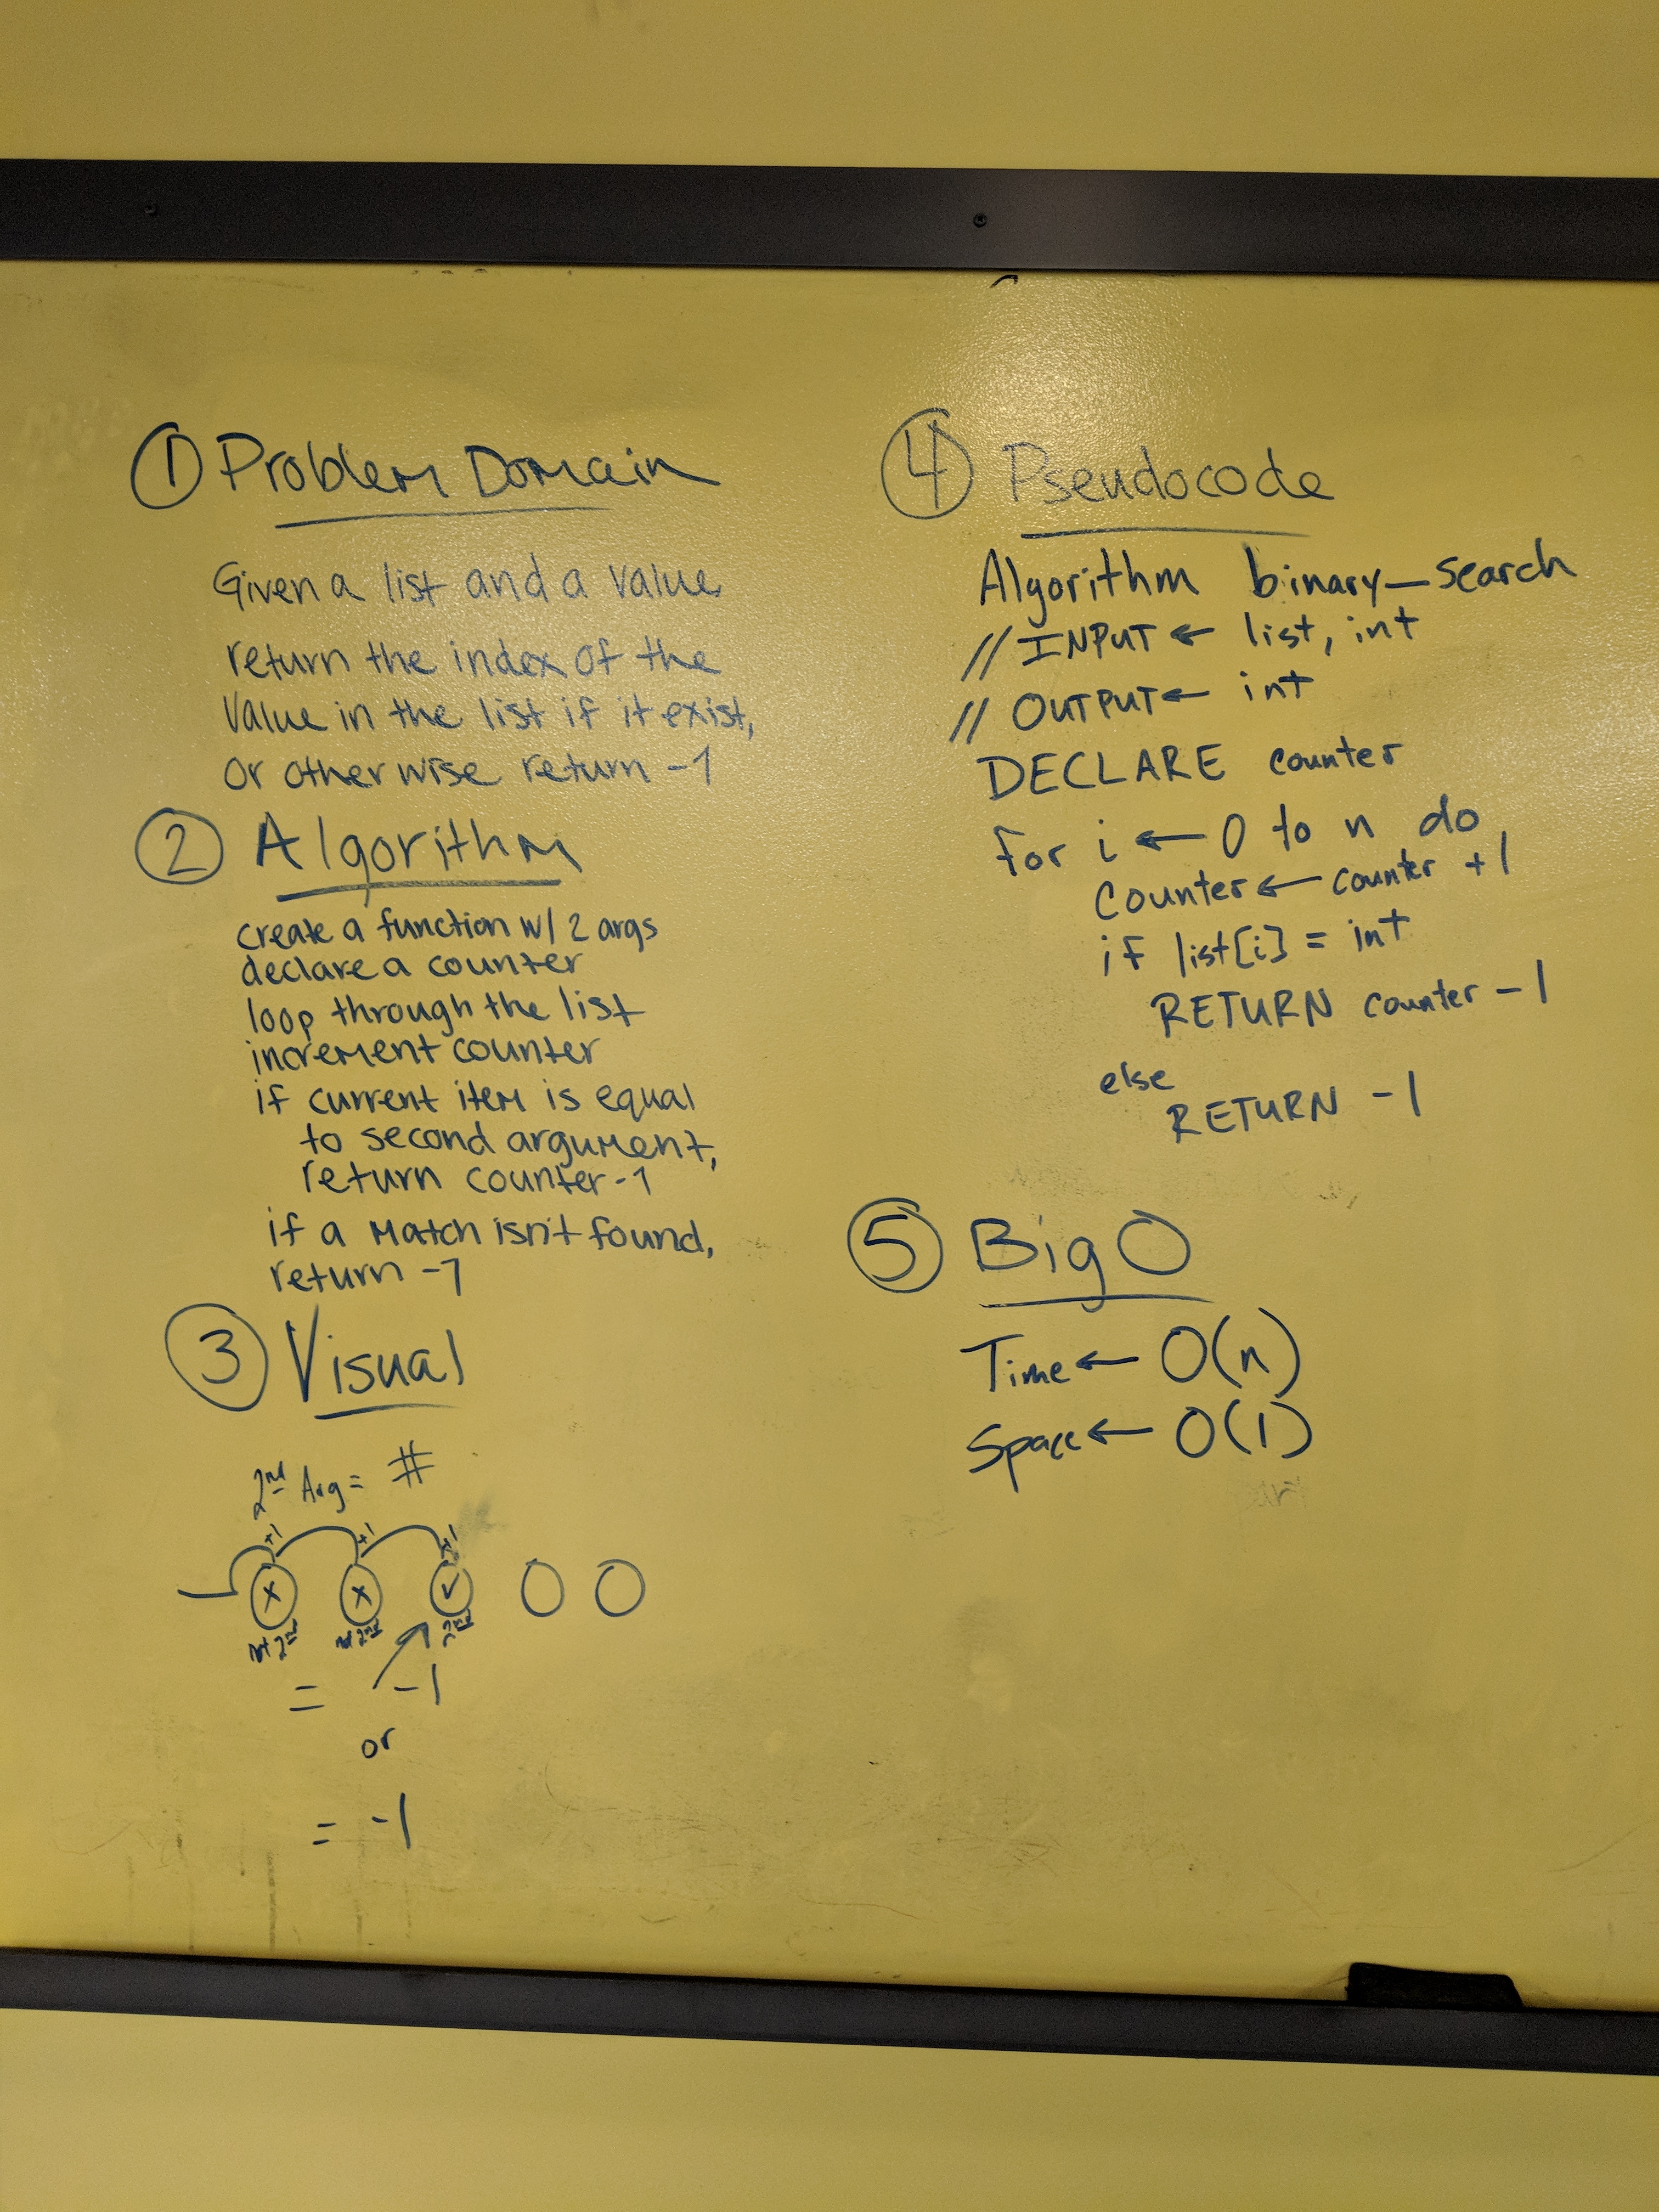 ① Problem Domain
Given a list and a value
return the index of the
value in the list if it exist,
or otherwise return -1
② Algorithm
create a function w/ 2 args
declare a counter
loop through the list
increment counter
if current item is equal
to second argument,
return counter-1
if a match isn't found,
return -1
③ Visual
2nd Arg = #
+1 +1 +1
x x ✓
not 2nd not 2nd 2nd
= -1
or
= -1
④ Pseudocode
Algorithm binary_search
// INPUT ← list, int
// OUTPUT ← int
DECLARE counter
for i ← 0 to n do
counter ← counter +1
if list[i] = int
RETURN counter -1
else
RETURN -1
⑤ Big O
Time ← O(n)
Space ← O(1)